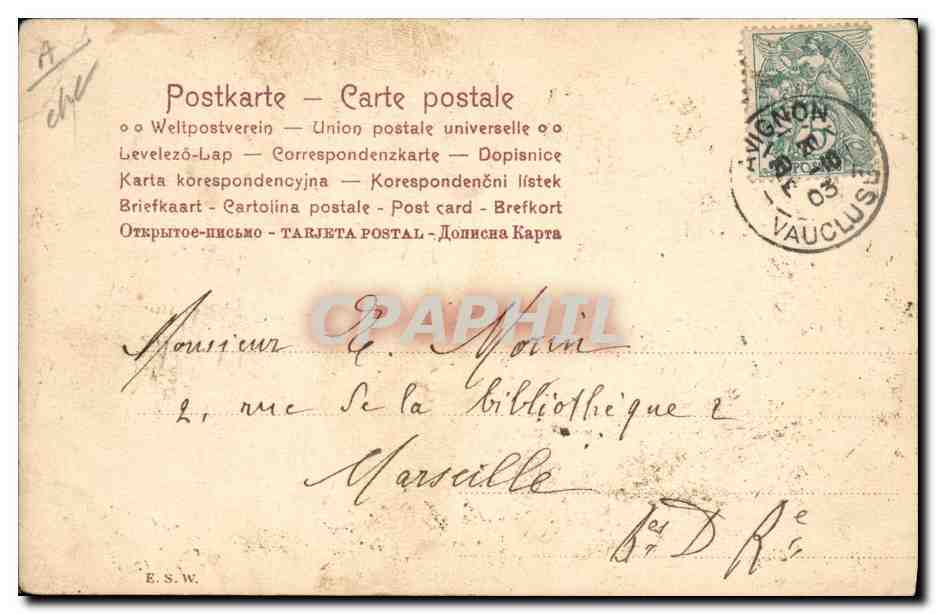 A
Postkarte – Carte postale
°° Weltpostverein — Union postale universelle °°
Levelező-Lap — Correspondenzkarte — Dopisnice
Karta korespondencyjna — Korespondenční lístek
Briefkaart - Cartolina postale - Post card - Brefkort
Открытое-письмо - TARJETA POSTAL - Дописна Карта
AVIGNON
03
VAUCLUSE
CPAPHIL
Monsieur E. Morin
2, rue de la bibliothèque 2
Marseille
Bes D Re
E. S. W.